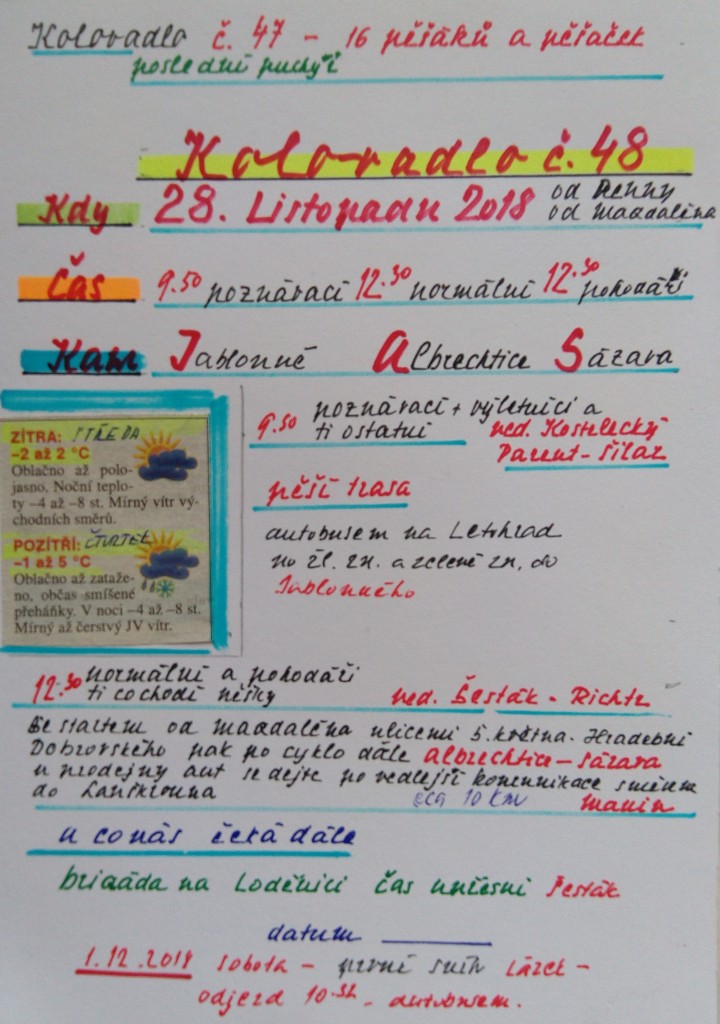 Koloradlo č. 47 - 16 pěšáků a pěšaček
poslední puchýř
Koloradlo č. 48
Kdy 28. Listopadu 2018 od Penny
od Magdaléna
Čas 9.50 poznávací 12.30 normální 12.30 pohodáři
Kam Jablonné Albrechtice Sázava
9.50 poznávací + výletníci a
ti ostatní ved. Kostelecký
Parent - Šilar
ZÍTRA: STŘEDA
–2 až 2 °C
Oblačno až polo-
jasno. Noční teplo-
ty –4 až –8 st. Mírný vítr vý-
chodních směrů.
POZÍTŘÍ: ČTVRTEK
–1 až 5 °C
Oblačno až zataže-
no, občas smíšené
přeháňky. V noci –4 až –8 st.
Mírný až čerstvý JV vítr.
pěší trasa
autobusem na Letohrad
po žl. zn. a zelené zn. do
Jablonného
12.30 normální a pohodáři
ti co chodí pěšky ved. Šesták - Richtr
se startem od Magdaléna ulicemi 5. května - Hradební
Dobrovského pak po cyklo dále Albrechtice - Sázava
u prodejny aut se dejte po vedlejší komunikace směrem
do Lanškrouna cca 10 km
a co nás čeká dále
brigáda na Loděnici čas upřesní Šesták
datum
1.12.2018 sobota - první sníh Lázek -
odjezd 10.32 - autobusem.